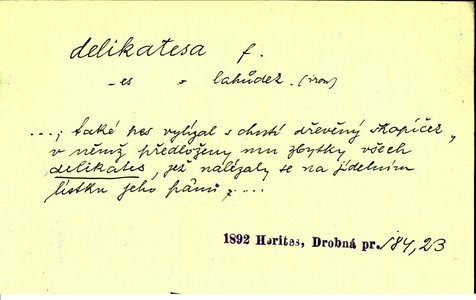 delikatesa f.
-es = lahůdek. (iron)
...; také pes vylízal s chutí dřevěný škopíček,
v němž předloženy mu zbytky všech
delikates, jež nalézaly se na jídelním
lístku jeho pánů, ...
1892 Herites, Drobná pr. I 84, 23